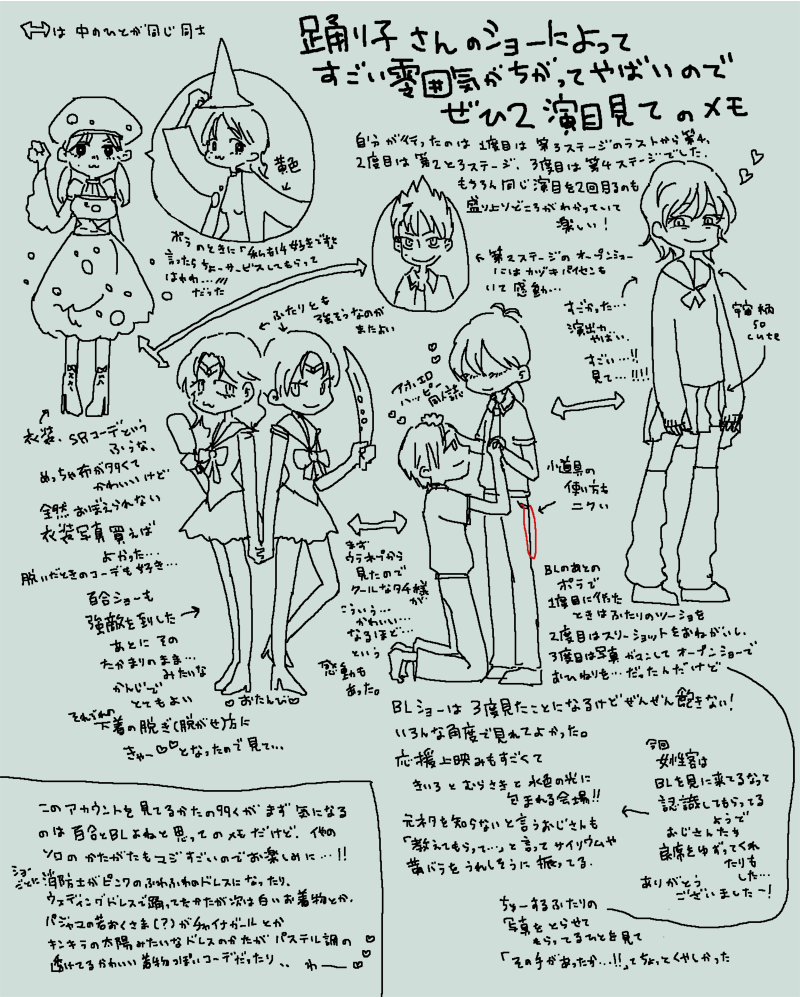 ⇔は 中のひとが同じ同士
踊り子さんのショーによって
すごい雰囲気がちがってやばいので
ぜひ2演目見てのメモ
自分が行ったのは 1度目は 第3ステージのラストから第4、
2度目は第2と3ステージ、3度目は第4ステージでした。
もちろん同じ演目を2回見るのも
盛り上りどころがわかっていて
楽しい！
黄色
ポラのときに「私も好きです」と
言ったらちょーサービスしてもらって
はわわ…///
だった
←第2ステージのオープンショー
にはカヅキパイセンも
いて感動…
すごかった…
演出力
やばい。
すごい…!!
見て…!!!!
宇宙柄
so
cute
ふたりとも
強そうなのが
またよい
衣装、SRコーデという
ふうな、
めっちゃ布が多くて
かわいいけど
全然おぼえられない
衣装写真買えば
よかった…
脱いだときのコーデも好き…
百合ショーも
強敵を倒した
あとにその
たかまりのまま…みたいな
かんじで
とてもよい
それぞれの
下着の脱ぎ(脱がせ)方に
きゃー♡♡となったので見て…
♡おたんび♡
アホエロ
ハッピー
同人誌
まず
ウラネプから
見たので
クールなタチ様が
こういう…
かわいい…
なるほど…
という
感動も
あった。
小道具の
使い方も
ニクい
BLのあとの
ポラで
1度目に行った
ときはふたりのツーショを
2度目はスリーショットをおねがいし、
3度目は写真ガマンしてオープンショーで
おひねりも…だったんだけど
BLショーは 3度見たことになるけどぜんぜん飽きない！
いろんな角度で見れてよかった。
応援上映みもすごくて
きいろとむらさきと水色の光に
包まれる会場!!
元ネタを知らないと言うおじさんも
「教えてもらって…」と言ってサイリウムや
黄バラをうれしそうに振ってる。
今回
女性客は
BLを見に来てるなって
認識してもらってる
ようで
おじさんたち
座席をゆずってくれ
たりも
した…
ありがとう
ございましたー！
ちゅーするふたりの
写真をとらせて
もらってるひとを見て
「その手があったか…!!」てちょっとくやしかった
このアカウントを見てるかたの多くがまず気になる
のは百合とBLよねと思ってのメモだけど、他の
ソロのかたがたもマジすごいのでお楽しみに…!!
ショーごとに消防士がピンクのふわふわのドレスになったり、
ウェディングドレスで踊ってたかたが次は白いお着物とか、
パジャマの若おくさま(？)がチャイナガールとか
キンキラの太陽みたいなドレスのかたがパステル調の
透けてるかわいい着物っぽいコーデだったり、、わー♡♡